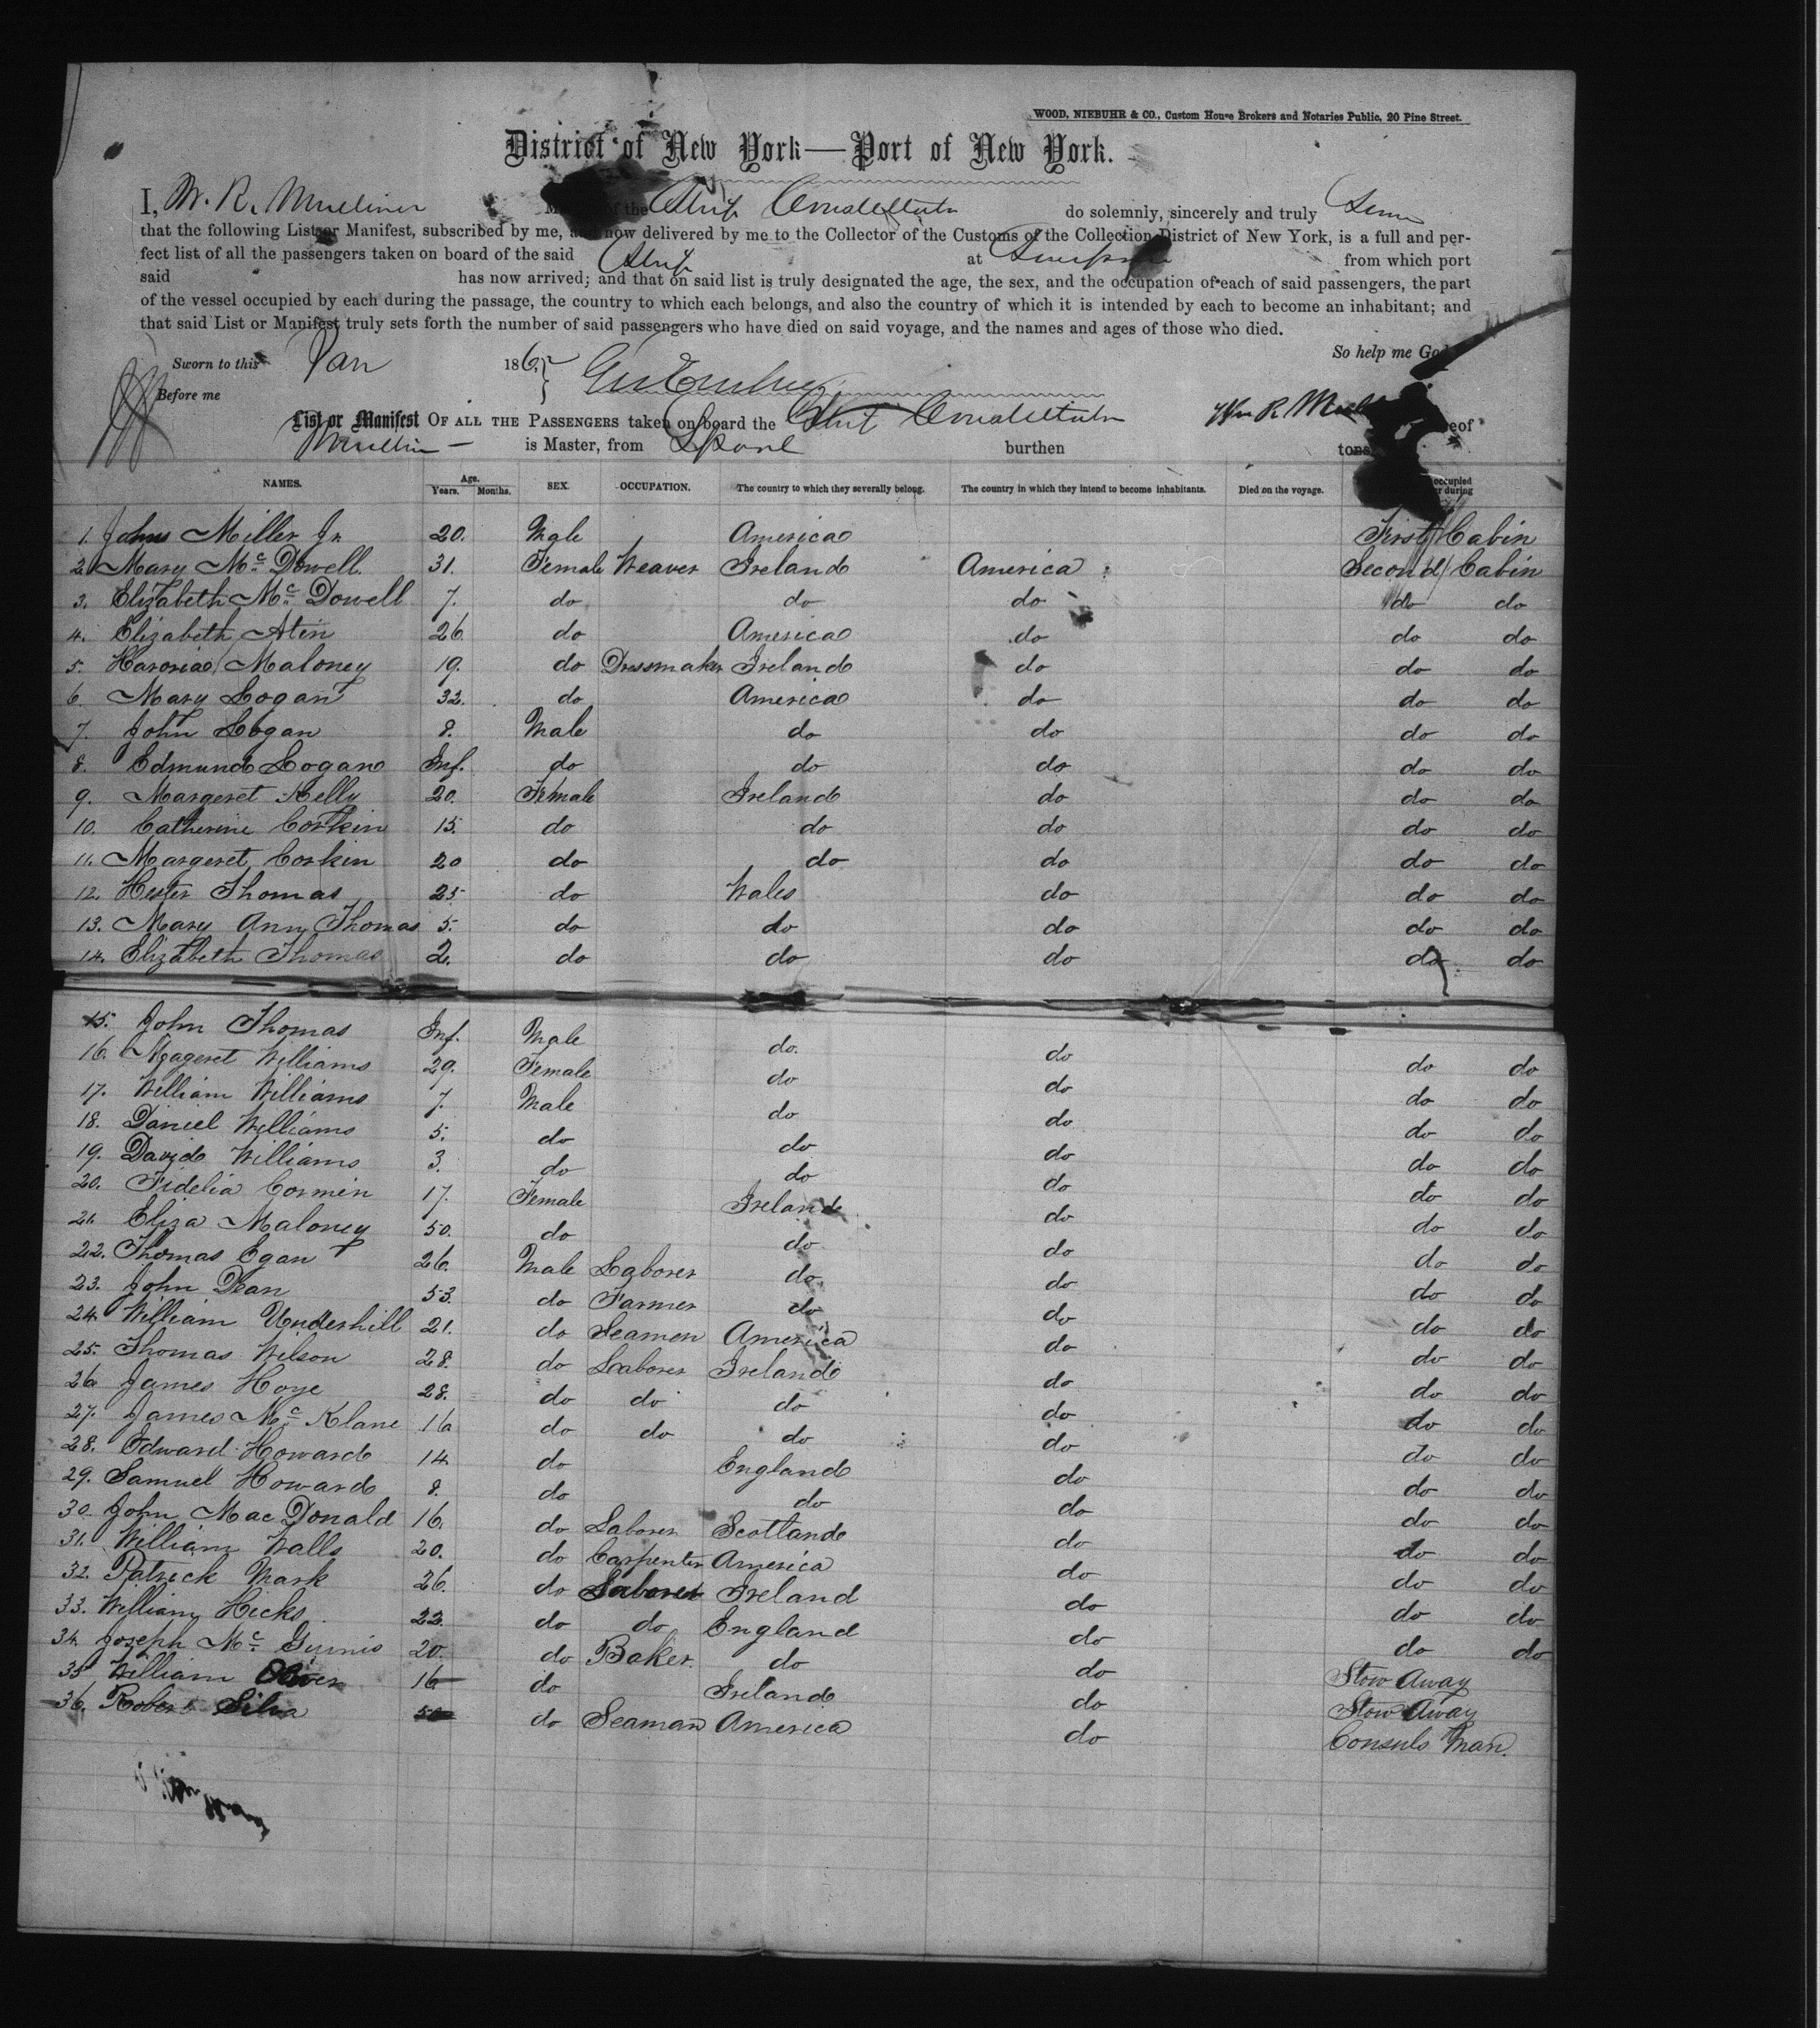 WOOD, NIEBUHR & CO., Custom House Brokers and Notaries Public, 20 Pine Street.
District of New York—Port of New York.
I, W. R. Mulliner of the Ship do solemnly, sincerely and truly
that the following List or Manifest, subscribed by me, and now delivered by me to the Collector of the Customs of the Collection District of New York, is a full and per-
fect list of all the passengers taken on board of the said Ship at from which port
said has now arrived; and that on said list is truly designated the age, the sex, and the occupation of each of said passengers, the part
of the vessel occupied by each during the passage, the country to which each belongs, and also the country of which it is intended by each to become an inhabitant; and
that said List or Manifest truly sets forth the number of said passengers who have died on said voyage, and the names and ages of those who died.
So help me God
Sworn to this Jan 186
Before me
List or Manifest OF ALL THE PASSENGERS taken on board the Ship Wm R.
is Master, from burthen tons
NAMES. Age. Years. Months. SEX. OCCUPATION. The country to which they severally belong. The country in which they intend to become inhabitants. Died on the voyage. occupied during
1. John Miller Jr 20. Male America First Cabin
2. Mary Mc Dowell. 31. Female Weaver Ireland America Second Cabin
3. Elizabeth Mc Dowell 7. do do do do do
4. Elizabeth Atin 26 do America do do do
5. Maloney 19. do Dressmaker Ireland do do do
6. Mary Logan 32. do America do do do
7. John Logan 8. Male do do do do
8. Edmund Logan Inf. do do do do do
9. Margeret Kelly 20. Female Ireland do do do
10. Catherine Corkin 15. do do do do do
11. Margeret Corkin 20 do do do do do
12. Hester Thomas 25 do Wales do do do
13. Mary Ann Thomas 5. do do do do do
14. Elizabeth Thomas 2. do do do do do
15. John Thomas Inf. Male do. do do do
16. Mageret Williams 29. Female do do do do
17. William Williams 7. Male do do do do
18. Daniel Williams 5. do do do do do
19. David Williams 3. do do do do do
20. Fidelia Cormin 17. Female Ireland do do do
21. Eliza Maloney 50. do do do do do
22. Thomas Egan 26. Male Laborer do do do do
23. John Dean 53. do Farmer do do do do
24. William Underhill 21. do Seamen America do do do
25. Thomas Wilson 28. do Laborer Ireland do do do
26 James Hoye 28. do do do do do do
27. James Mc Klane 16 do do do do do do
28. Edward Howard 14 do England do do do
29. Samuel Howard 8. do do do do do
30. John Mac Donald 16. do Laborer Scotland do do do
31. William Walls 20. do Carpenter America do do do
32. Patrick Mark 26. do Laborer Ireland do do do
33. William Hicks 22. do do England do do do
34. Joseph Mc Guinis 20. do Baker. do do Stow Away
35 William Oliver 16 do Ireland do Stow Away
36. Robert Silva 50 do Seaman America do Consuls Man.